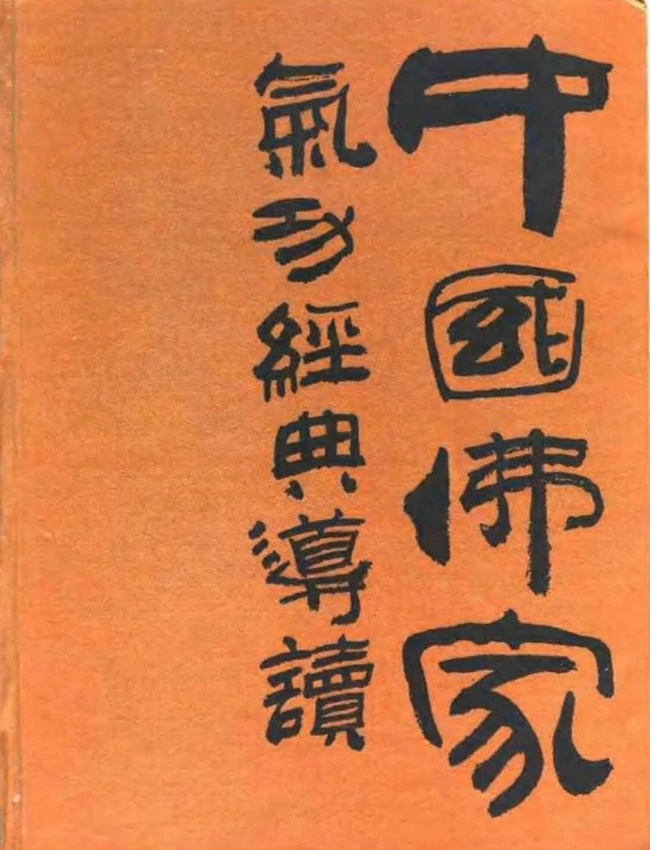 中國佛家
氣功經典導讀